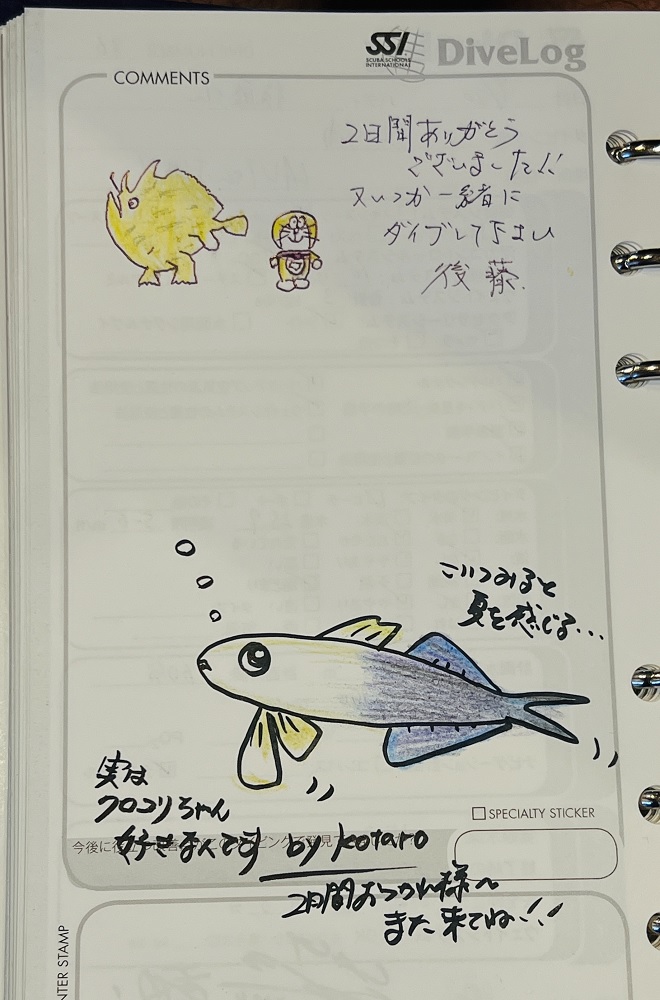 SSI
SCUBA SCHOOLS
INTERNATIONAL
DiveLog
COMMENTS
2日間ありがとう
ございました!!
又いつか一緒に
ダイブして下さい
後藤.
こいつみると
夏を感じる...
実は
クロユリちゃん
好きなんです by kotaro
SPECIALTY STICKER
今後に役立
2日間おつかれ様へ
また来てね!!
NTER STAMP